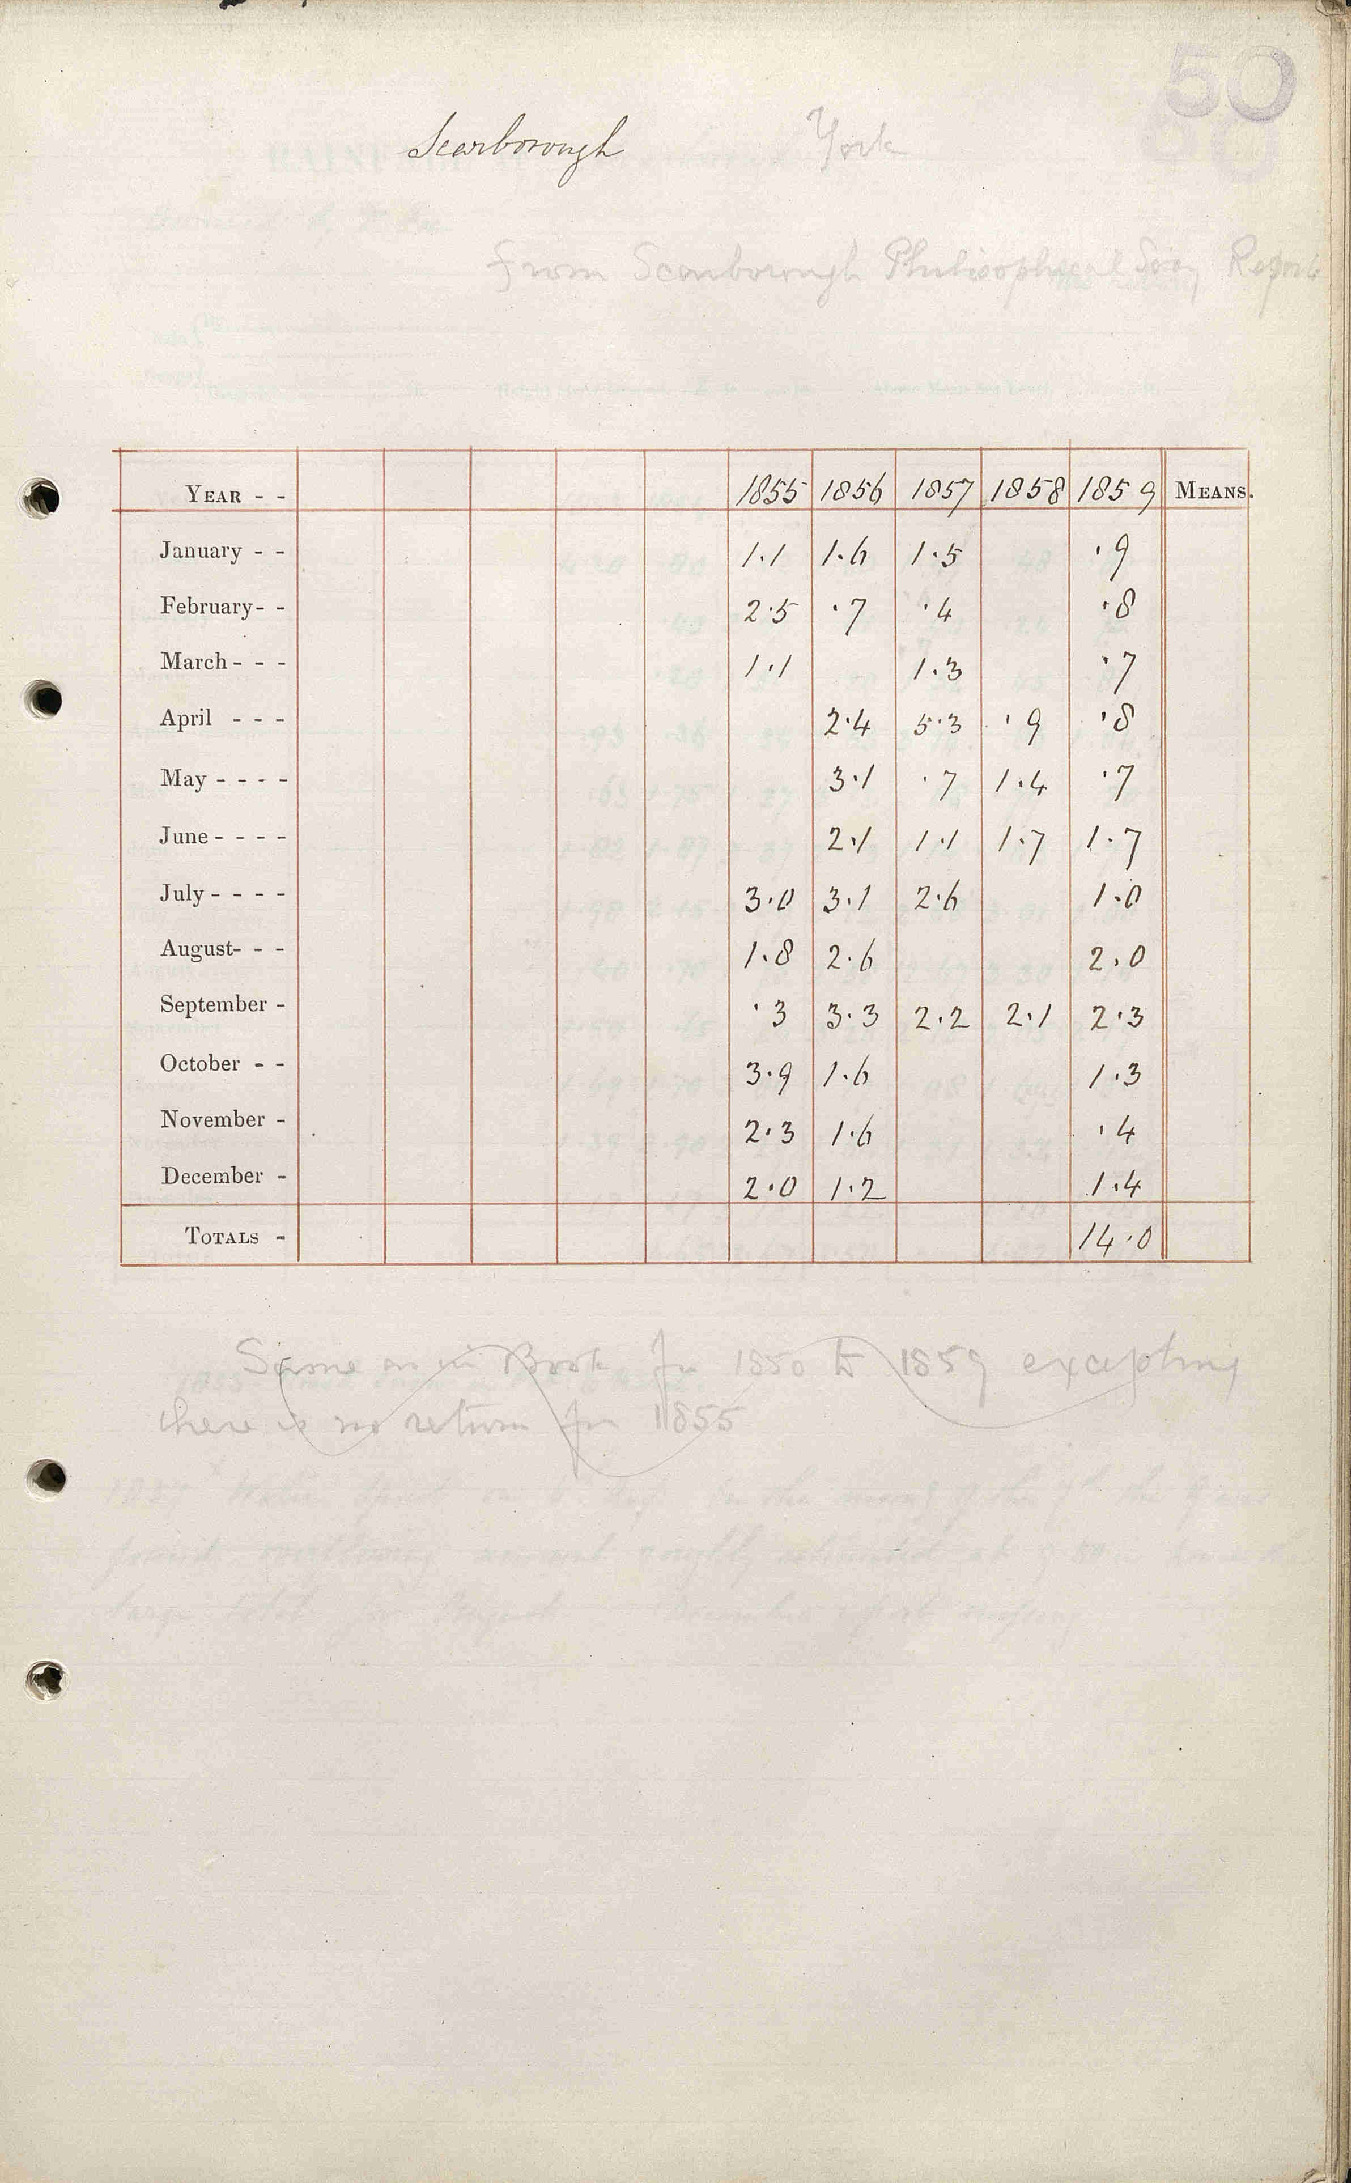 50
Scarborough York
from Scarborough Philosophical Socy Report
YEAR - - 1855 1856 1857 1858 1859 MEANS.
January - - 1.1 1.6 1.5 .9
February - - 2.5 .7 .4 .8
March - - - 1.1 1.3 .7
April - - - 2.4 5.3 .9 .8
May - - - - 3.1 .7 1.4 .7
June - - - - 2.1 1.1 1.7 1.7
July - - - - 3.0 3.1 2.6 1.0
August - - - 1.8 2.6 2.0
September - .3 3.3 2.2 2.1 2.3
October - - 3.9 1.6 1.3
November - 2.3 1.6 .4
December - 2.0 1.2 1.4
TOTALS - 14.0
Same as in Book for 1850 to 1859 excepting
there is no return for 1855